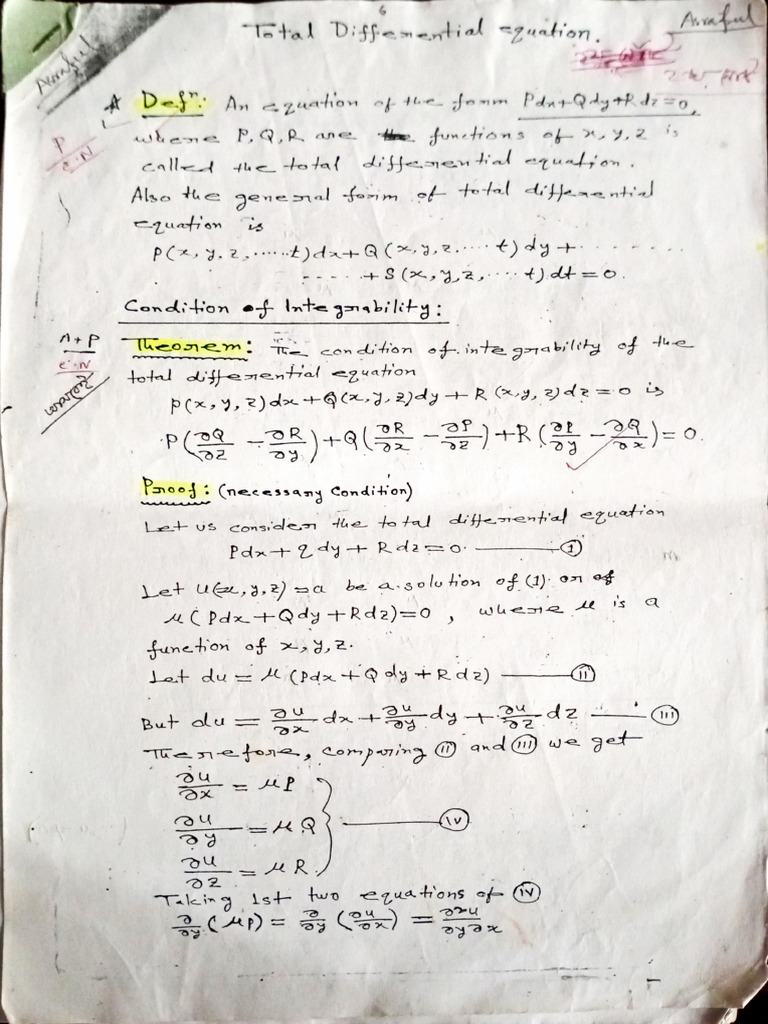 6
Total Differential equation.
Asraful
Asraful
Defⁿ: An equation of the form Pdx+Qdy+Rdz=0,
P
C.N
where P, Q, R are the functions of x, y, z is
called the total differential equation.
Also the general form of total differential
equation is
P(x, y, z, .....t)dx+Q(x, y, z.....t)dy+........
.....+S(x, y, z, ....t)dt=0.
Condition of Integrability:
A+P
C.N
Theorem: The condition of integrability of the
total differential equation
P(x, y, z)dx+Q(x, y, z)dy+R(x, y, z)dz=0 is
P(∂Q/∂z - ∂R/∂y)+Q(∂R/∂x - ∂P/∂z)+R(∂P/∂y - ∂Q/∂x)=0.
Proof: (necessary condition)
Let us consider the total differential equation
Pdx+Qdy+Rdz=0. —— (I)
Let u(x, y, z)=a be a solution of (1) or of
μ(Pdx+Qdy+Rdz)=0, where μ is a
function of x, y, z.
Let du = μ(Pdx+Qdy+Rdz) —— (II)
But du = ∂u/∂x dx + ∂u/∂y dy + ∂u/∂z dz —— (III)
Therefore, comparing (II) and (III) we get
∂u/∂x = μP
∂u/∂y = μQ } —— (IV)
∂u/∂z = μR.
Taking 1st two equations of (IV)
∂/∂y (μP) = ∂/∂y (∂u/∂x) = ∂²u/∂y∂x